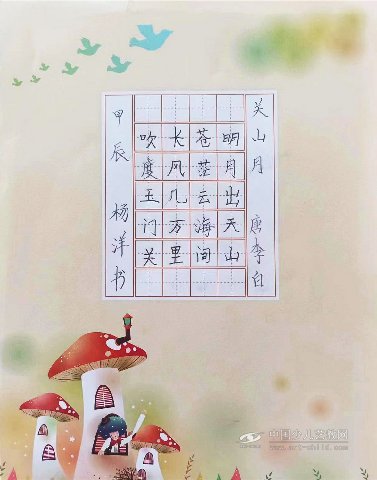 关山月 唐 李白
明月出天山
苍茫云海间
长风几万里
吹度玉门关
甲辰 杨洋书
中国少儿艺教网
www.art-child.com